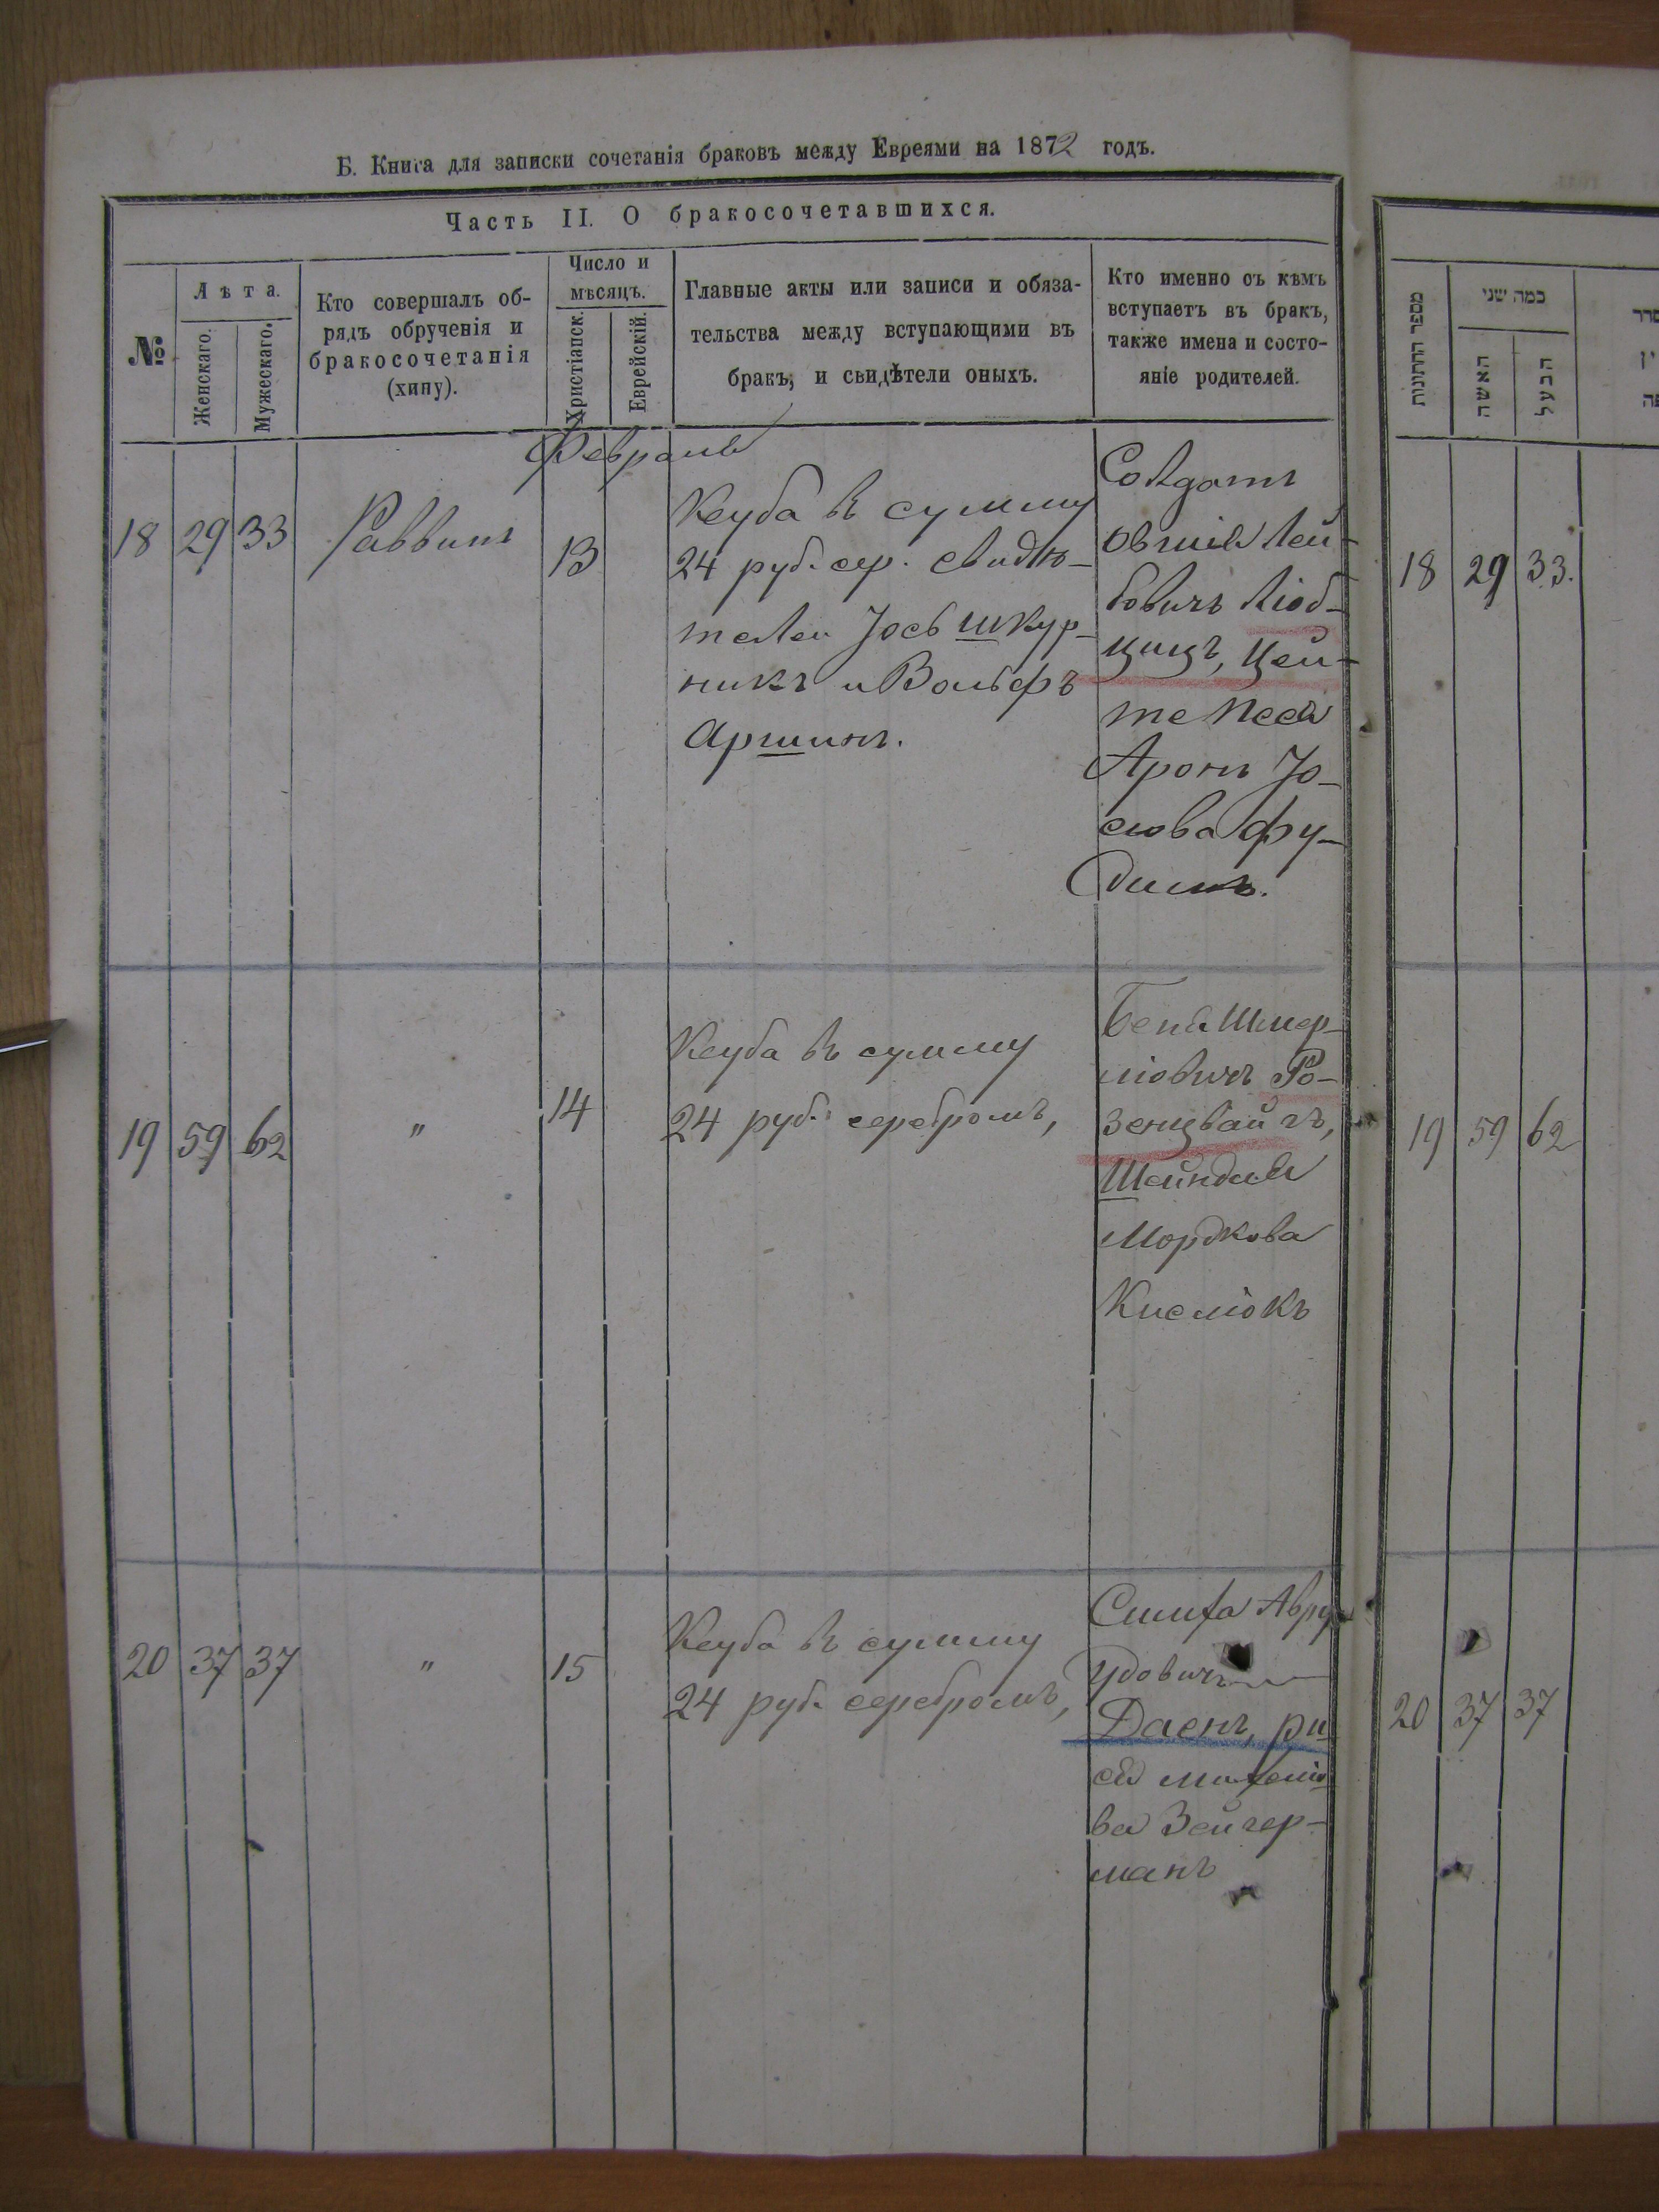 Б. Книга для записки сочетанія браковъ между Евреями на 1872 годъ.
Часть II. О бракосочетавшихся.
№
Лѣта.
Женскаго.
Мужескаго.
Кто совершалъ об-
рядъ обрученія и
бракосочетанія
(хипу).
Число и
мѣсяцъ.
Христіанск.
Еврейскій.
Главные акты или записи и обяза-
тельства между вступающими въ
бракъ, и свидѣтели оныхъ.
Кто именно съ кѣмъ
вступаетъ въ бракъ,
также имена и состо-
яніе родителей.
Февраль
18 29 33 Раввинъ 13
Кеуба въ сумму
24 руб. сер. свидѣ-
тели Јось Шкур-
никъ и Вольфъ
Аршинъ.
Солдатъ
Овшія Лей-
бовичъ Люб-
цицъ, Цей-
те Песя
Аронъ Јо-
сіова Фу-
19 59 62 " 14
Кеуба въ сумму
24 руб. серебромъ,
Беня Шмер-
ліовичъ Ро-
зенцвайгъ,
Шейндля
Мордкова
Кисліокъ
20 37 37 " 15
Кеуба въ сумму
24 руб. серебромъ,
Симха Авру
удовичъ
Даенъ, Ри
ся Михеліо
ва Зейгер-
манъ
מספר החתונות
כמה שני
האשה
הבעל
18 29 33.
19 59 62
20 37 37